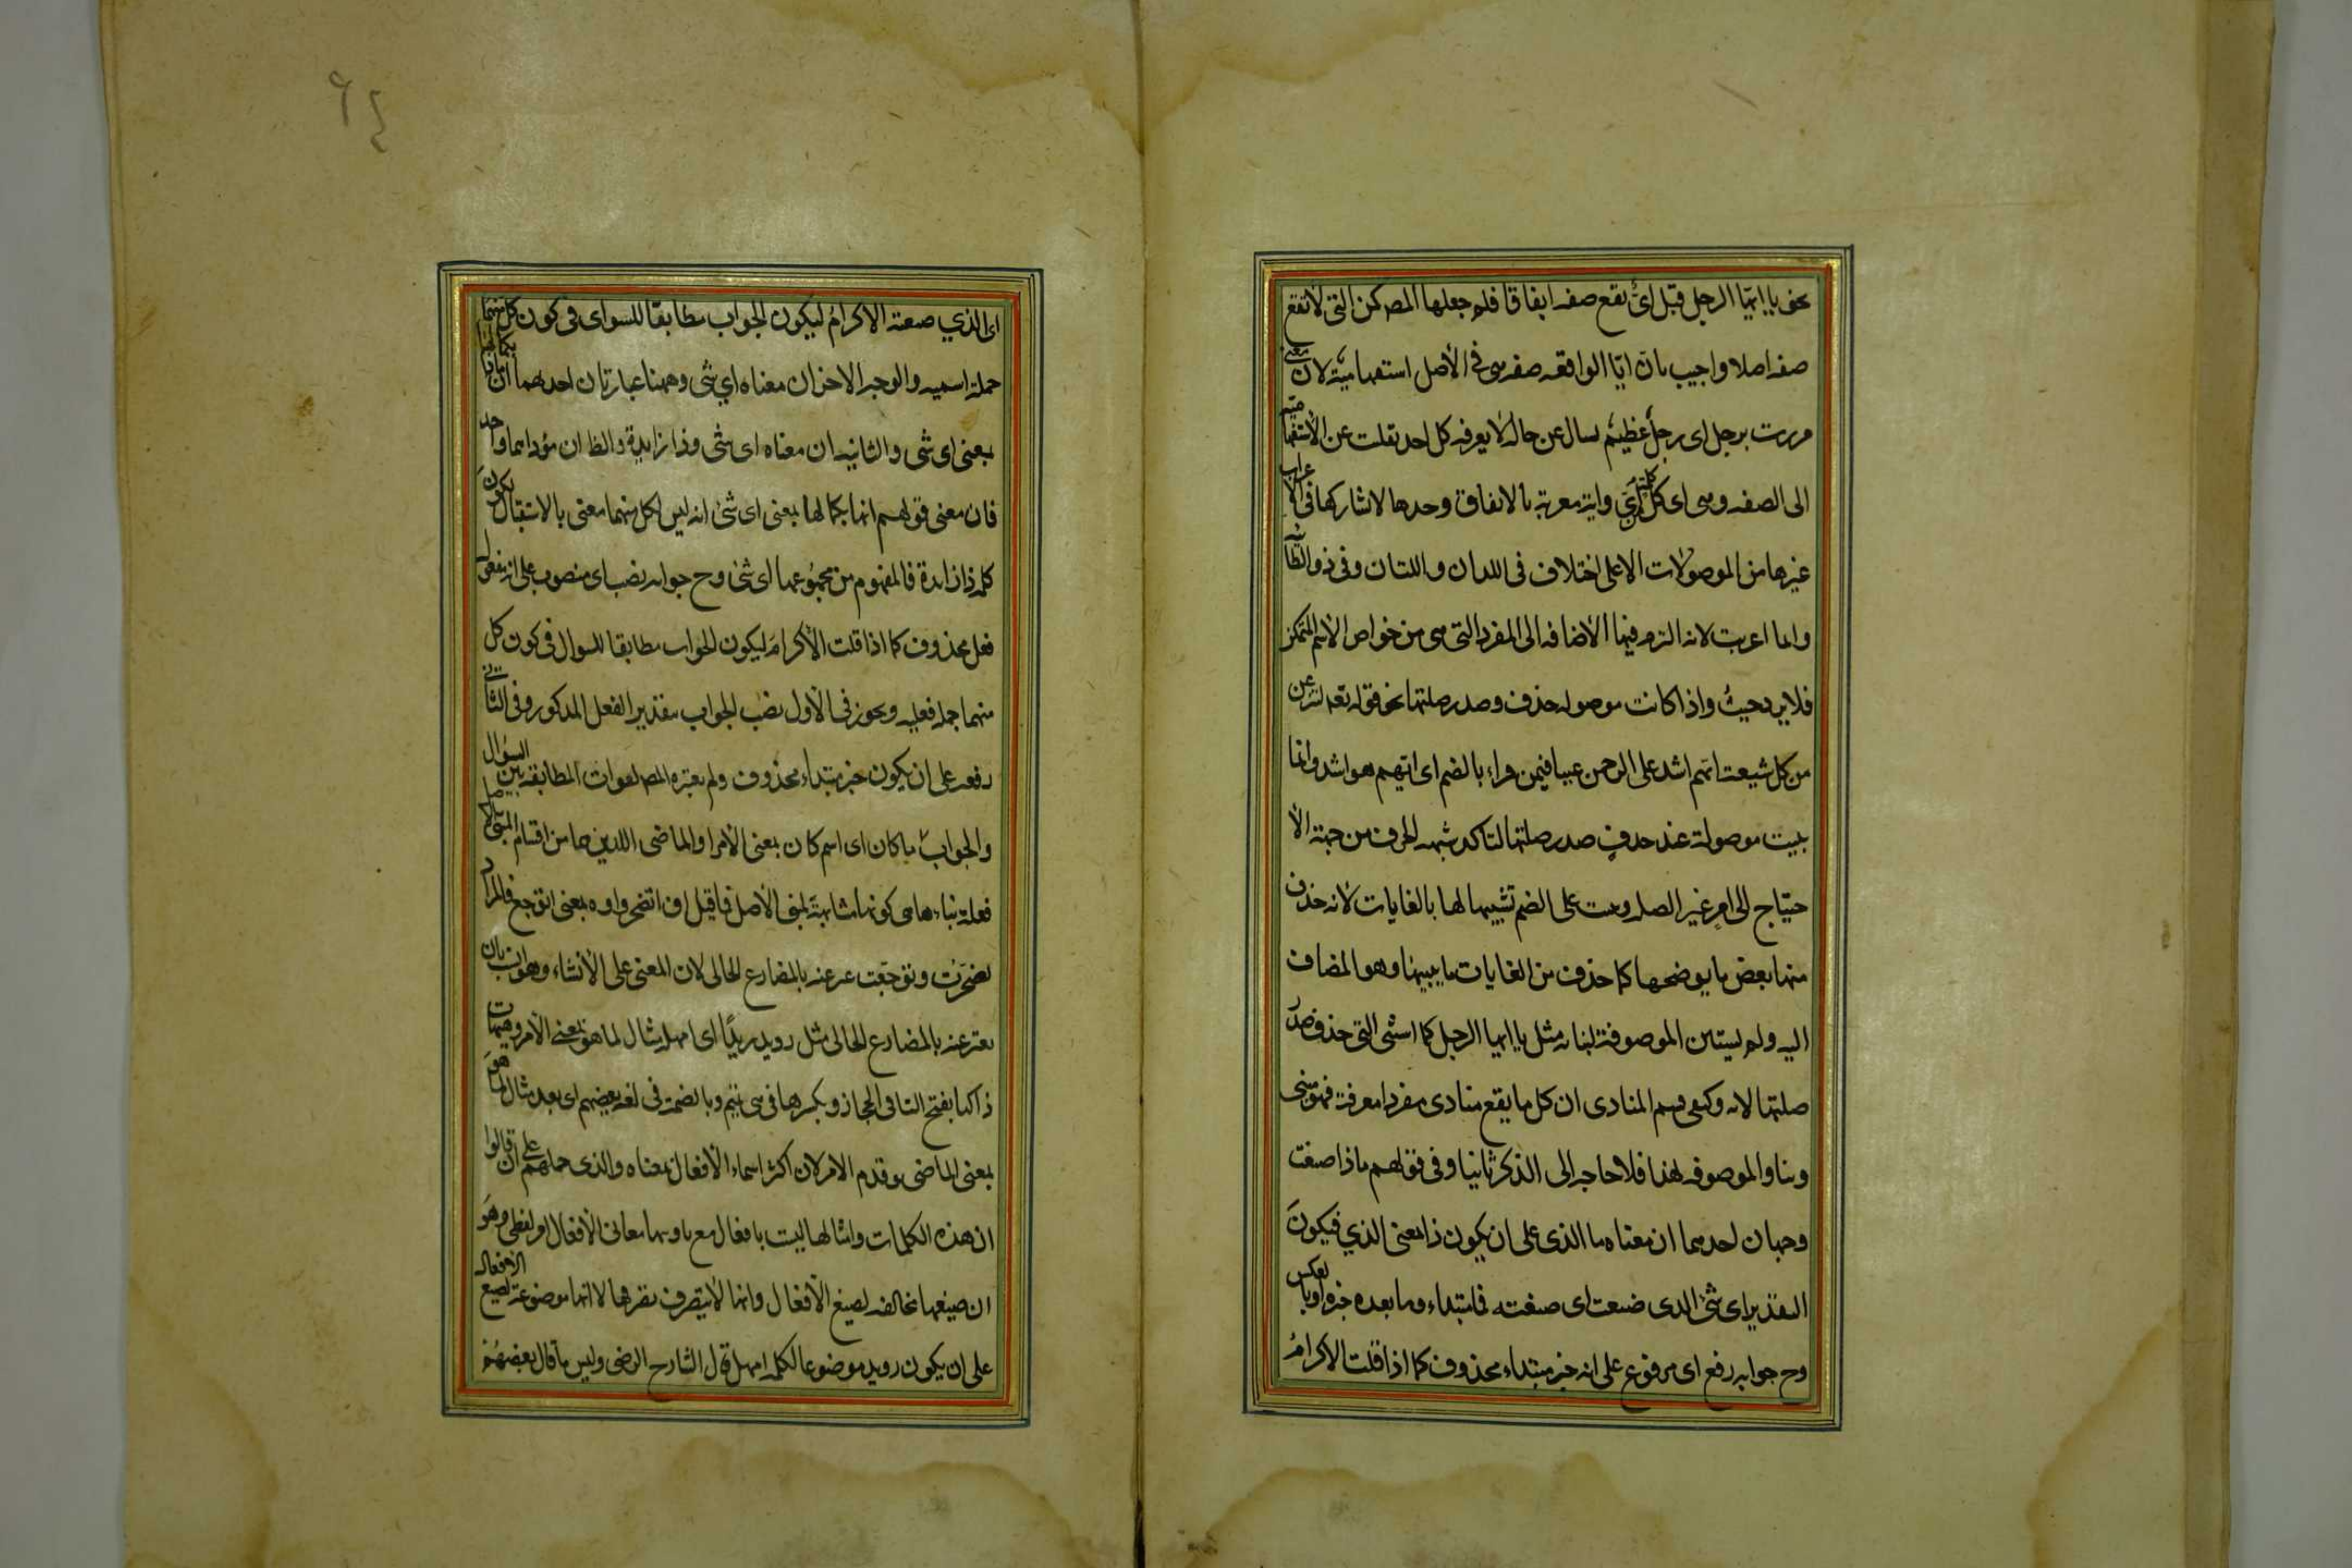 نحو يا ايها الرجل قيل اىّ يقع صفه اتفاقا فلم جعلها المصـ كمن التى لا تقع
صفه اصلا واجيب بان ايا الواقعه صفه هى فى الأصل استفهاميّة لان معنى
مررت برجل اى رجل عظيم يسال عن حاله لا يعرفه كل احد نقلت عن الأستفها ميه
الى الصفه وهى اى كل كلمة اىّ واية معربة بالاتفاق وحدها لا تشاركها فى الأ عراب
غيرها من الموصولات الا على اختلاف فى اللذان واللتان وفى ذو الطّا ئيه
وانما اعربت لانه التزم فيها الأضافه الى المفرد التى هى من خواص الاسم المتمكن
فلا يرد حيث واذا كانت موصوله حذف وصدر صلتها نحو قوله تعـ لننزعن
من كل شيعة ايهم اشد على الرحمن عتيا فيمن قراء بالضم اى ايهم هو اشد وانما
بنيت موصولة عند حذف صدر صلتها لتاكد شبهه الحرف من جهة الأ
حتياج الى امر غير الصله وبنيت على الضم تشبيها لها بالغايات لانه حذف
منها بعض ما يوضحها كما حذف من الغايات ما يبينها وهو المضاف
اليه ولم يستثن الموصوفة لبنائه مثل يا ايها الرجل كما استثنى التى حذف صدر
صلتها لانه وكيفى فهم المنادى ان كل ما يقع منادى مفردا معرفة فهو مبنى
وبناوالموصوفه لهذا فلا حاجه الى الذكر ثانيا وفى قولهم ماذا صنعت
وجهان احدهما ان معناه ما الذى على ان يكون ذا بمعنى الذي فيكون
التقدير اى شئ الذى صنعت اى صنعته فما مبتداء وما بعده خبره او با لعكس
وح جوابه رفع اى مرفوع على انه خبر مبتداء محذوف كما اذا قلت الاكرامُ
٦٤
اى الذي صنعته الاكرامُ ليكون الجواب مطابقا للسوال فى كون كل منهما
جملة اسميه والوجه الاخر ان معناه اي شى وههنا عبارتان احدهما ان
بمعنى اى شى والثانيه ان معناه اى شى وذا زايدة والظا ان مؤداهما واحد
فان معنى قولهم انها بكمالها بمعنى اى شئ انه ليس لكل منهما معنى بالاستقبال لكون
كلمه ذا زائدة فالمفهوم من مجموعهما اى شئ وح جوابه نصب اى منصوب على انه مفعوله
فعل محذوف كما اذا قلت الأكرامَ ليكون الجواب مطابقا للسوال فى كون كل
منهما جمله فعليه ويجوز فى الأول نصب الجواب بتقدير الفعل المذكور وفى الثا نى
رفعه على ان يكون خبر مبتداء محذوف ولم يعتبره المصـ لفوات المطابقه بين السؤال
والجواب ما كان اى اسم كان بمعنى الأمر او الماضى اللذين هما من اقسام المبنى
فعلة بناءها هى كونها مشابهةً لمبنى الأصل فما قيل اف اتضجر واوه بمعنى اتوجع فالمراد
تضجّرت وتوجّعت عبر عنه بالمضارع الحالى لان المعنى على الأنشاء وهو انسب بان
يعبر عنه بالمضارع الحالى مثل رويد زيدًا اى امهله مثال لما هو بمعنى الأمر وهيها ت
ذاك بفتح التا فى الحجاز وبكسرها فى بنى تميم وبالضمة فى لغه بعضهم اى بعد مثال لما هو
بمعنى الماضى وقدم الامر لان اكثر اسماء الأفعال بمعناه والذى حملهم على ان قالوا
ان هذه الكلمات وامثالها ليست بافعال مع معانى الأفعال امر لفظى وهو
ان صيغها مخالفه لصيغ الأفعال وانها لا يتصرف تصرفها لا انها موضوعة لصيغ الأفعال
على ان يكون رويد موضوعا لكلمه امهل قال الشارح الرضى وليس ما قال بعضهم